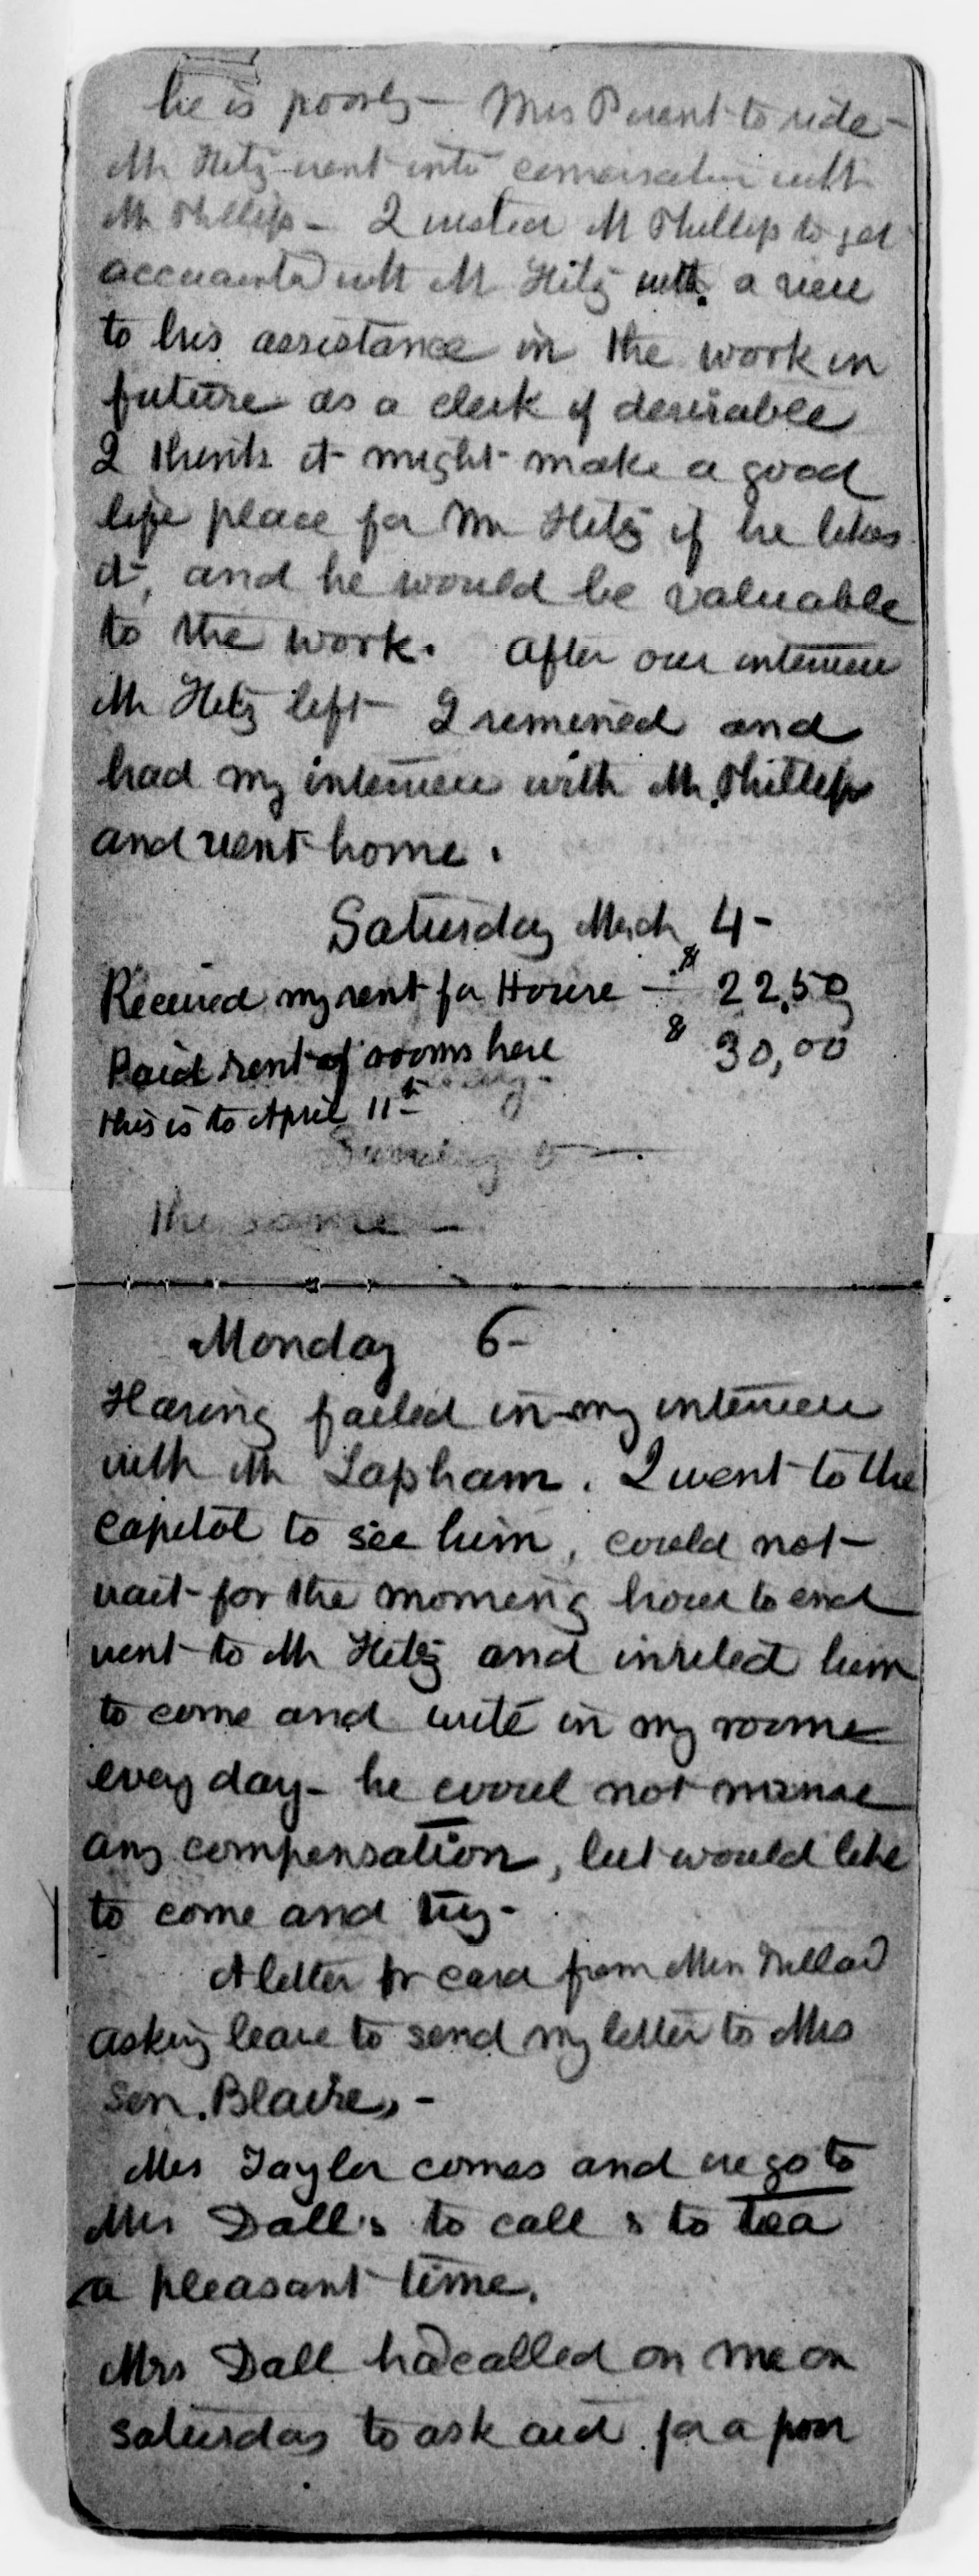 he is poorly — Mrs P went to ride —
Mr Hitz went into conversation with
Mr Phillips — I wished Mr Phillips to get
accquainted with Mr Hitz with a view
to his assistance in the work in
future as a clerk if desirable
I think it might make a good
life place for Mr Hitz if he likes
it, and he would be valuable
to the work. After our interview
Mr Hitz left I remained and
had my interview with Mr. Phillips
and went home.
Saturday March 4 -
Received my rent for House — $ 22,50
Paid rent of rooms here $ 30,00
this is to April 11th
Sunday 5 —
The same —
Monday 6 -
Having failed in my interview
with Mr Lapham. I went to the
capitol to see him, could not
wait for the morning hour to end
went to Mr Hitz and invited him
to come and write in my rooms
every day - he would not name
any compensation, but would like
to come and try -
A letter or card from Mrs Willard
asking leave to send my letter to Mrs
Sen. Blaire, -
Mrs Taylor comes and we go to
Mrs Dall's to call & to tea
a pleasant time.
Mrs Dall had called on me on
saturday to ask aid for a poor